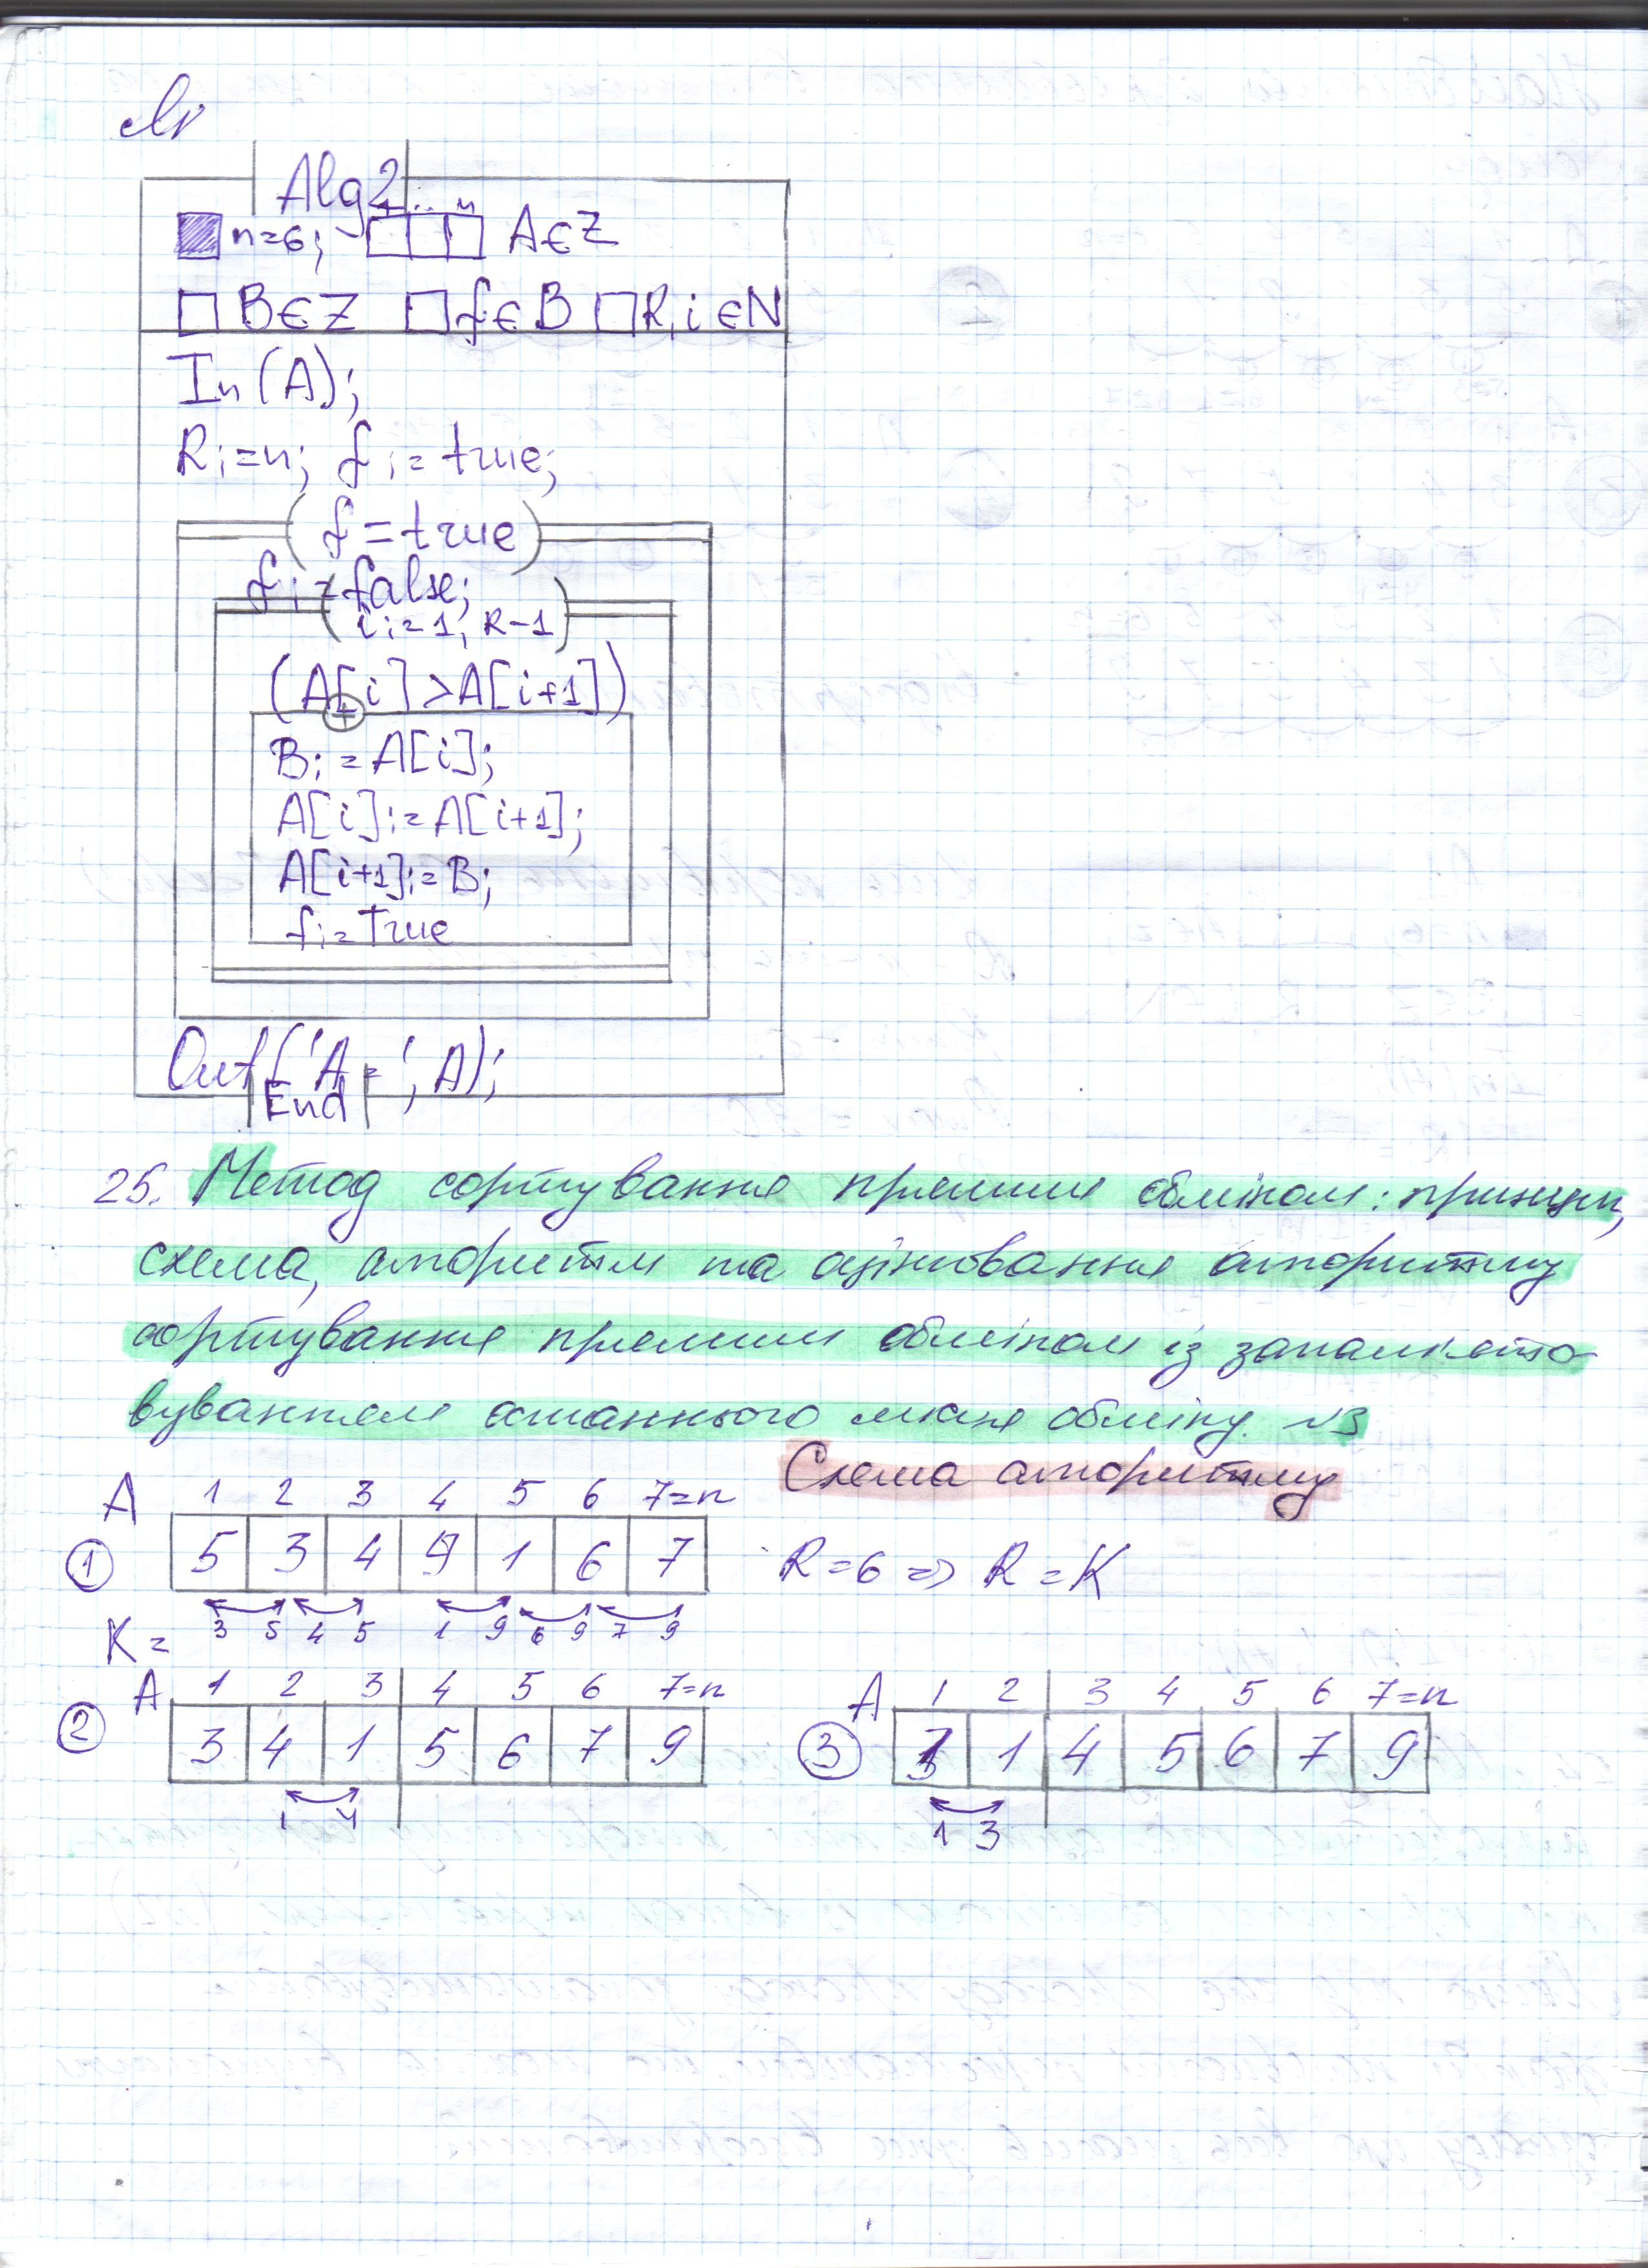 Alg2
1 .. n
n=6; A∈Z
B∈Z f∈B R,i∈N
In(A);
R:=n; f:=true;
(f=true)
f:=false;
(i:=1, R-1)
(A[i]>A[i+1])
+
B:=A[i];
A[i]:=A[i+1];
A[i+1]:=B;
f:=True
Out('A=', A);
End
25. Метод сортування прямим обміном: принцип,
схема, алгоритм та оцінювання алгоритму
сортування прямим обміном із запам'ято
вуванням останнього місця обміну. №3
Схема алгоритму
A 1 2 3 4 5 6 7=n
① 5 3 4 9 1 6 7 R=6 => R=K
K= 3 5 4 5 1 9 6 9 7 9
A 1 2 3 4 5 6 7=n
② 3 4 1 5 6 7 9
1 4
A 1 2 3 4 5 6 7=n
③ 3 1 4 5 6 7 9
1 3